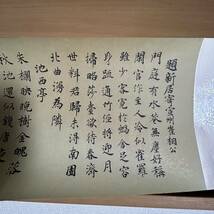 題新居寄宣州崔相公
門庭有水巷無塵好稱
閒官作主人冷似雀羅
雖少客寬於蝸舍足容
身疏通竹徑將迎月
掃掠莎臺欲待春濟
世料君歸未得南園
北曲漫為隣
池西亭
朱欄映晚樹金魄落
秋池還似錢唐